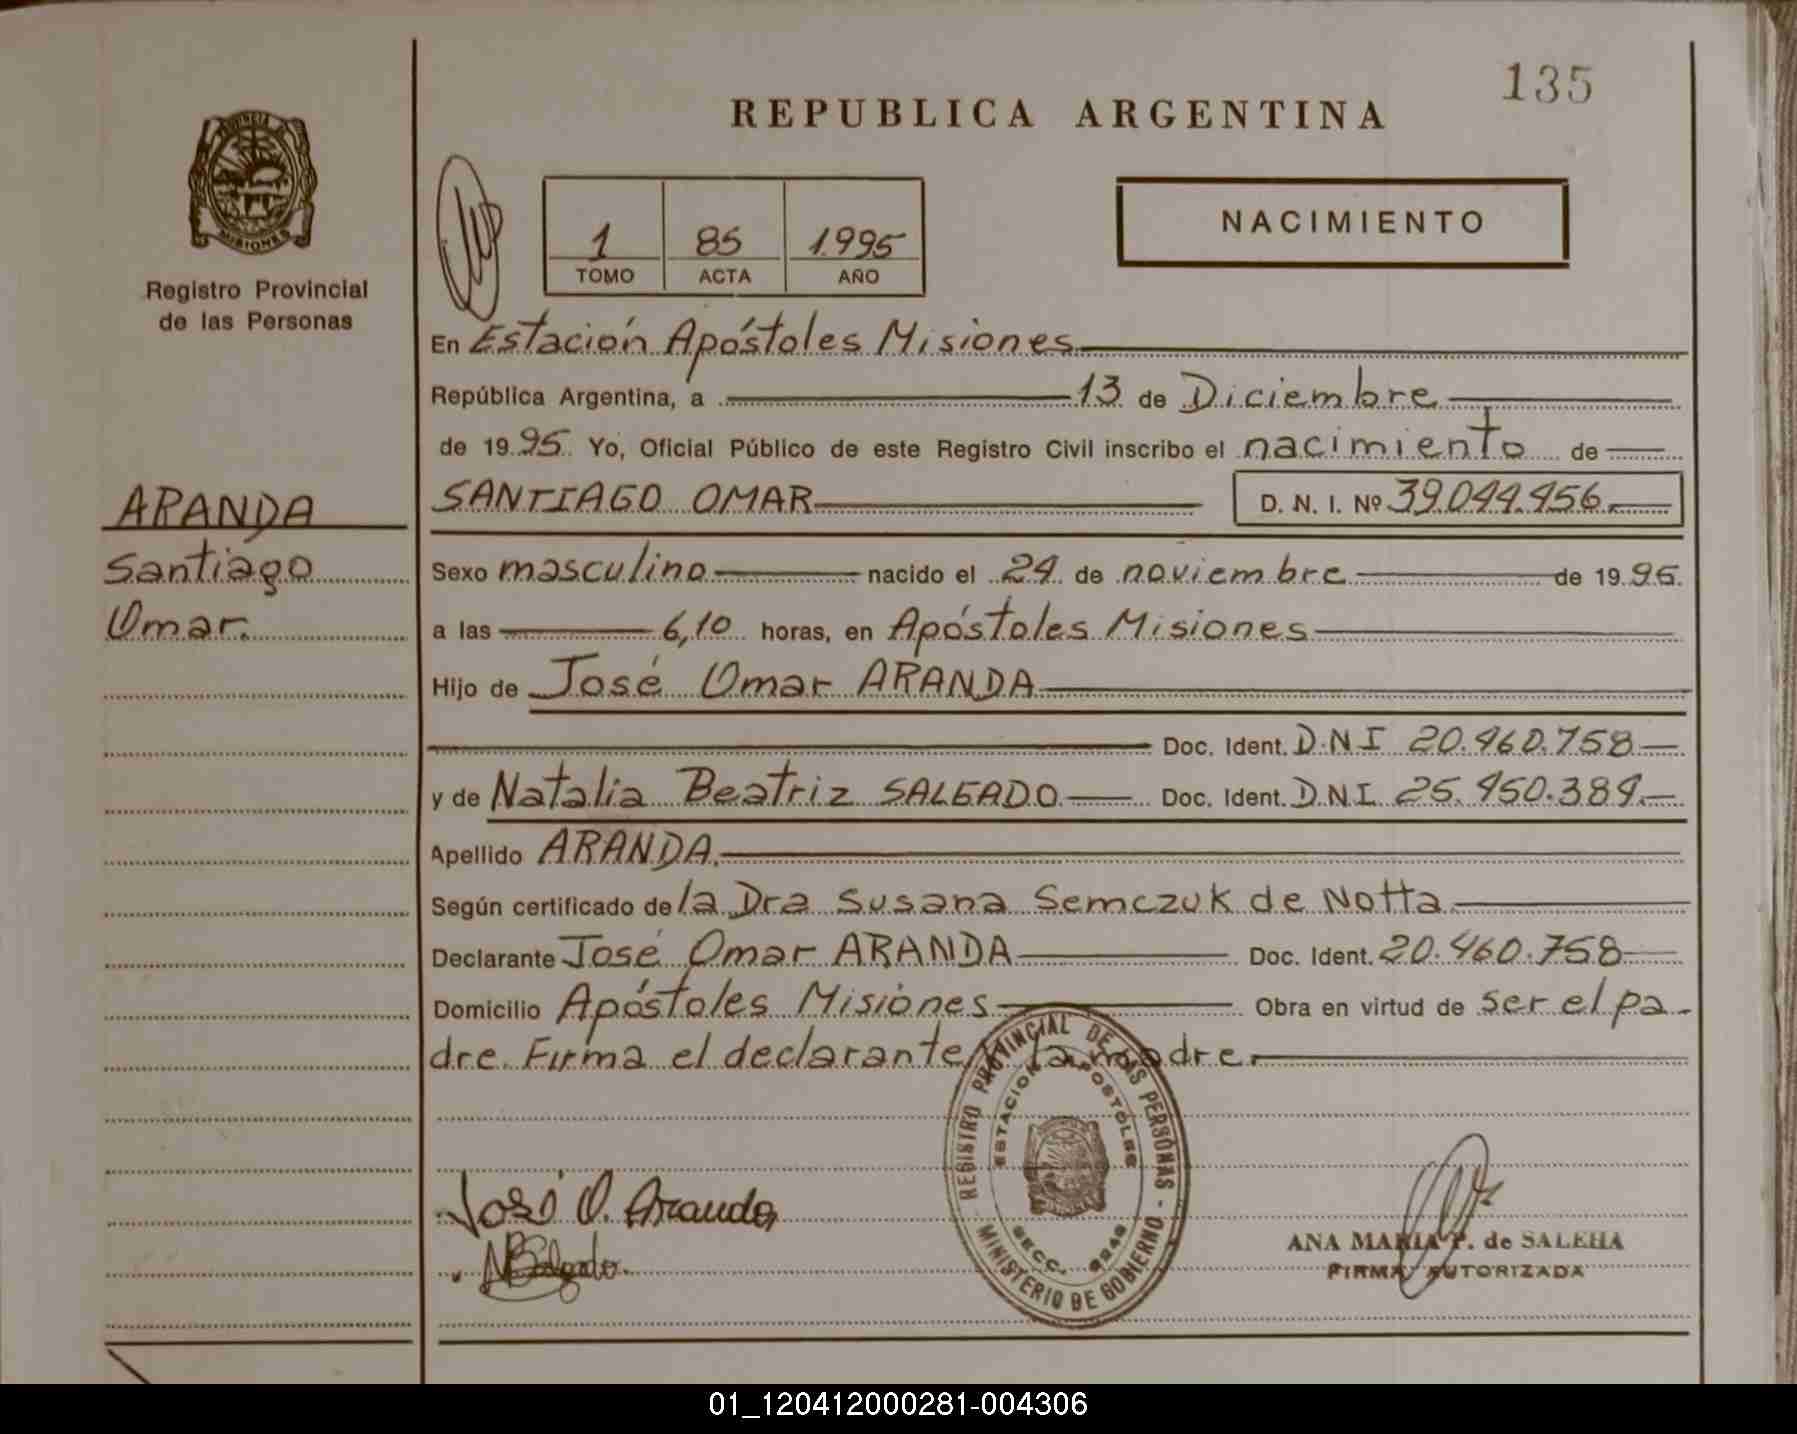 135
REPUBLICA ARGENTINA
PROVINCIA DE
MISIONES
Registro Provincial
de las Personas
1 85 1.995
TOMO ACTA AÑO
NACIMIENTO
En Estación Apóstoles Misiones
República Argentina, a 13 de Diciembre
de 1995 Yo, Oficial Público de este Registro Civil inscribo el nacimiento de
ARANDA
Santiago
Omar.
SANTIAGO OMAR D. N. I. Nº 39.044.456.
Sexo masculino nacido el 24 de noviembre de 1995.
a las 6,10 horas, en Apóstoles Misiones
Hijo de José Omar ARANDA
Doc. Ident. D.N.I 20.460.758
y de Natalia Beatriz SALGADO Doc. Ident. D.N.I 25.450.384.
Apellido ARANDA.
Según certificado de la Dra Susana Semczuk de Notta
Declarante José Omar ARANDA Doc. Ident. 20.460.758
Domicilio Apóstoles Misiones Obra en virtud de ser el pa-
dre. Firma el declarante y la madre.
REGISTRO PROVINCIAL DE LAS PERSONAS - MINISTERIO DE GOBIERNO -
ESTACION APOSTOLES
SECC.
José O. Aranda
NBSalgado.
ANA MARIA P. de SALEHA
FIRMA AUTORIZADA
01_120412000281-004306